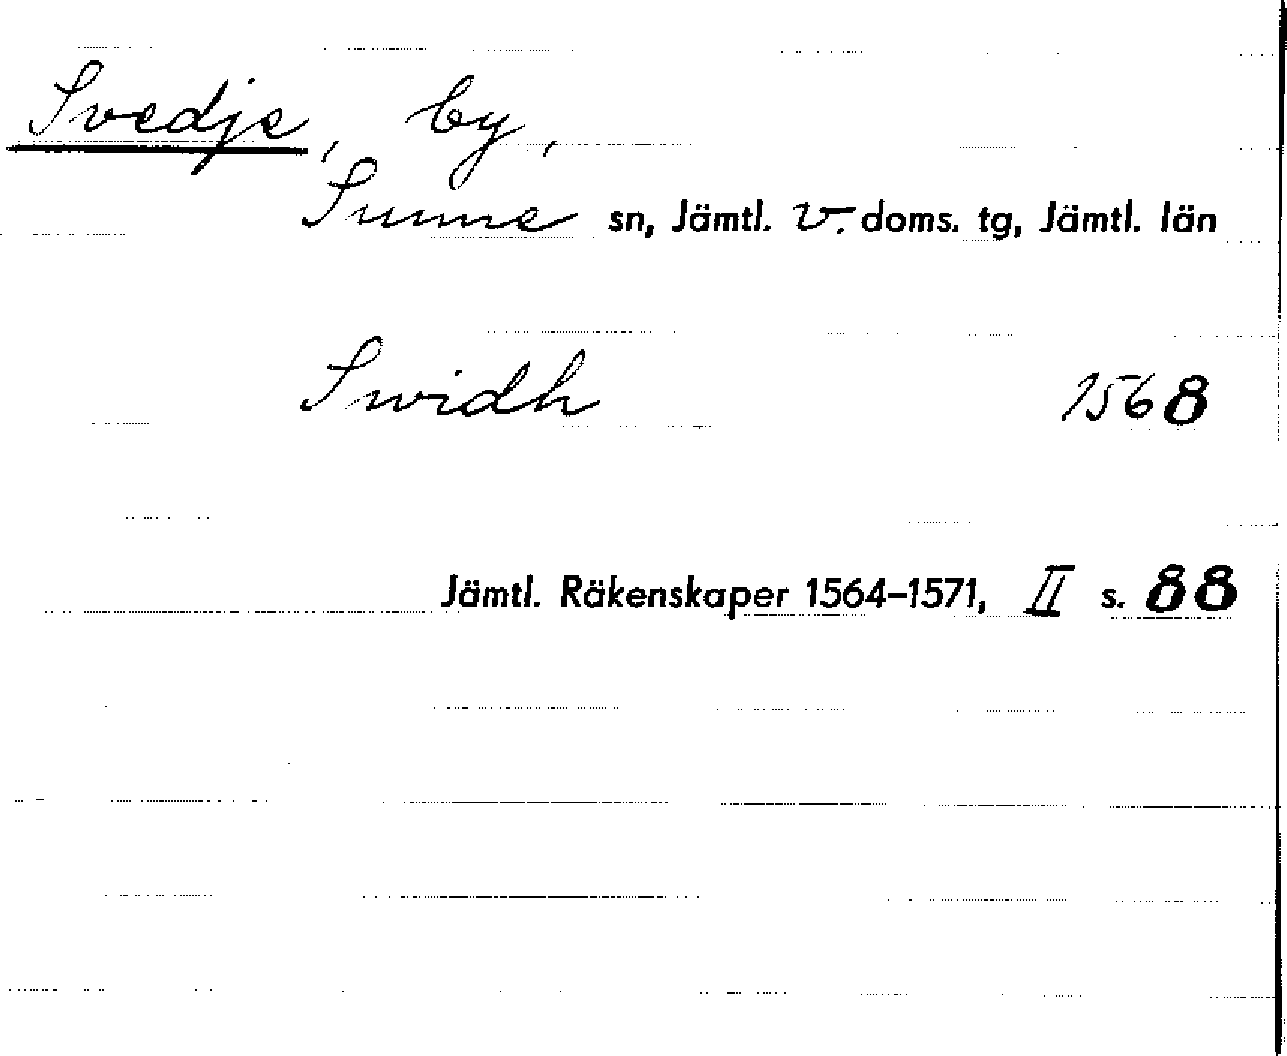 Svedje, by,
Sunne sn, Jämtl. v. doms. tg, Jämtl. län
Swidh 1568
Jämtl. Räkenskaper 1564–1571, II s. 88